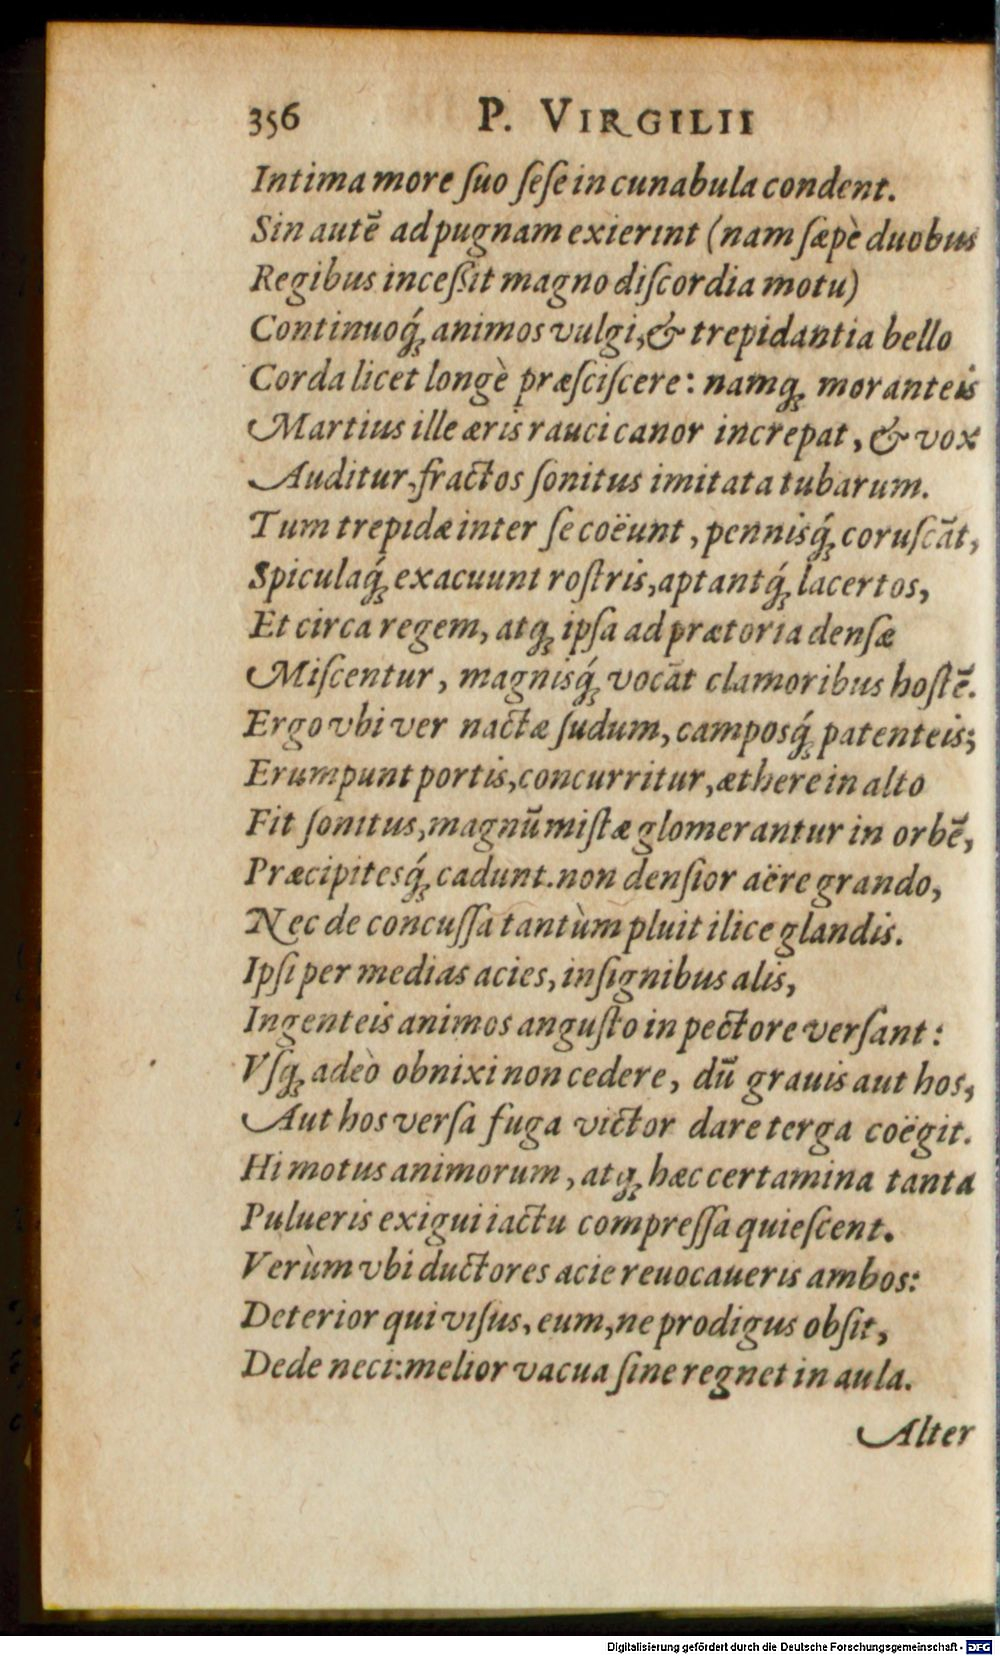 356 P. VIRGILII
Intima more ſuo ſeſe in cunabula condent.
Sin autē ad pugnam exierint (nam ſæpè duobus
Regibus inceſſit magno diſcordia motu)
Continuoq́ꝫ animos vulgi, & trepidantia bello
Corda licet longè præſciſcere: namqꝫ moranteis
Martius ille æris rauci canor increpat, & vox
Auditur, fractos ſonitus imitata tubarum.
Tum trepidæ inter ſe coëunt, pennisq́ꝫ coruſcāt,
Spiculaq́ꝫ exacuunt roſtris, aptantq́ꝫ lacertos,
Et circa regem, atqꝫ ipſa ad prætoria denſæ
Miſcentur, magnisq́ꝫ vocāt clamoribus hoſtē.
Ergo vbi ver nactæ ſudum, camposq́ꝫ patenteis;
Erumpunt portis, concurritur, æthere in alto
Fit ſonitus, magnū miſtæ glomerantur in orbē,
Præcipitesq́ꝫ cadunt. non denſior aëre grando,
Nec de concuſſa tantùm pluit ilice glandis.
Ipſi per medias acies, inſignibus alis,
Ingenteis animos anguſto in pectore verſant:
Vſqꝫ adeò obnixi non cedere, dū grauis aut hos,
Aut hos verſa fuga victor dare terga coëgit.
Hi motus animorum, atqꝫ hæc certamina tanta
Pulueris exigui iactu compreſſa quieſcent.
Verùm vbi ductores acie reuocaueris ambos:
Deterior qui viſus, eum, ne prodigus obſit,
Dede neci: melior vacua ſine regnet in aula.
Alter
Digitalisierung gefördert durch die Deutsche Forschungsgemeinschaft - DFG